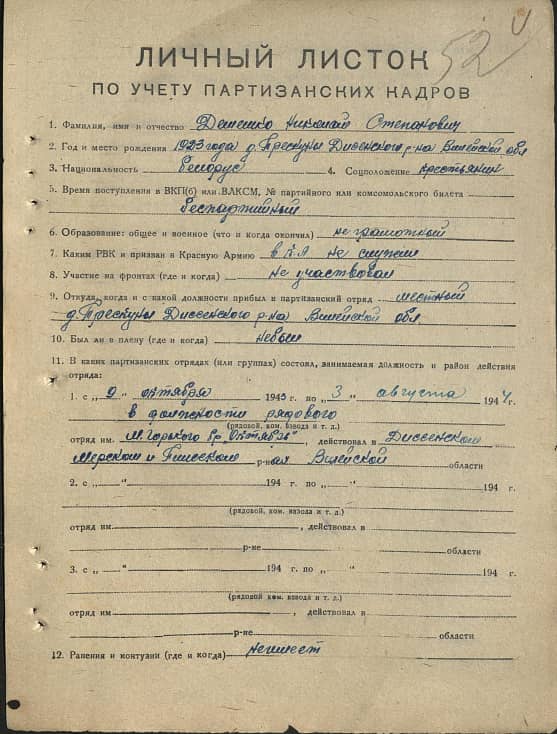 52
ЛИЧНЫЙ ЛИСТОК
ПО УЧЕТУ ПАРТИЗАНСКИХ КАДРОВ
1. Фамилия, имя и отчество Демешко Николай Степанович
2. Год и место рождения 1923 года д. Прескуны Диссенского р-на Вилейской обл
3. Национальность белорус 4. Соцположение крестьянин
5. Время поступления в ВКП(б) или ВЛКСМ, № партийного или комсомольского билета
беспартийный
6. Образование: общее и военное (что и когда окончил) не грамотный
7. Каким РВК и призван в Красную Армию в К-А не служил
8. Участие на фронтах (где и когда) не участвовал
9. Откуда, когда и с какой должности прибыл в партизанский отряд местный
д. Прескуны Диссенского р-на Вилейской обл
10. Был ли в плену (где и когда) небыл
11. В каких партизанских отрядах (или группах) состоял, занимаемая должность и район действия
отряда:
1. с „9" октября 1943 г. по „3" августа 1944 г.
в должности рядового
(рядовой, ком. взвода и т. д.)
отряд им. М. Горького бр. Октябрь", действовал в Диссенском
Мерском и Плисском р-нах Вилейской области
2. с „ " 194 г. по „ " 194 г.
(рядовой, ком. взвода и т. д.)
отряд им. , действовал в
р-не области
3. с „ " 194 г. по „ " 194 г.
(рядовой ком. взвода и т. д.)
отряд им. , действовал в
р-не области
12. Ранения и контузии (где и когда) неимеет